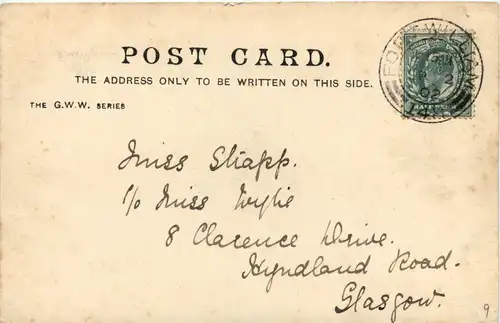 POST CARD.
THE ADDRESS ONLY TO BE WRITTEN ON THIS SIDE.
THE G.W.W. SERIES
FORT WILLIAM
2
02
Miss Shapp.
c/o Miss Wylie
8 Clarence Drive.
Hyndland Road.
Glasgow.
9